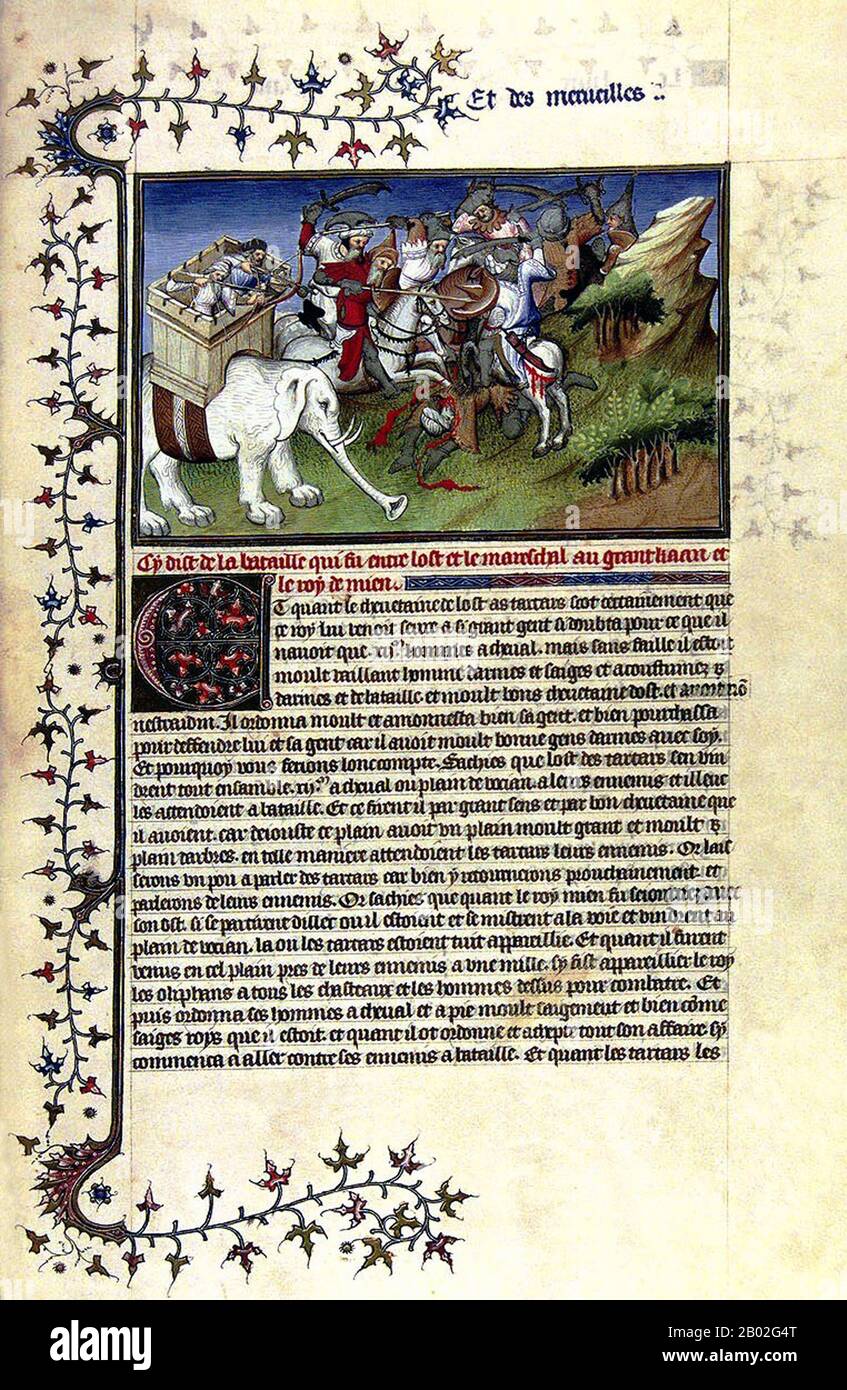 Et des merueilles :.
Cy dist de la bataille qui fu entre lost et le mareschal au grant kaan et
le roy de mien.
Et quant le cheuetaine de lost as tartars scot certainement que
ce roy lui venoit seure a si grant gent si doubta pour ce que il
nauoit que .xij.m hommes a cheual. mais sans faille il estoit
moult vaillant homme darmes et saiges et acoustumez
darmes et de bataille et moult bons cheuetaine dost. et
Il ordonna moult et amonnesta bien sa gent. et bien pourchassa
pour deffendre lui et sa gent car il auoit moult bonne gens darmes auec soy.
Et pourquoy vous feroions lonc compte. Sachies que lost des tartars sen vin
drent tout ensamble .xij.m a cheual ou plain de vocian. a leurs ennemis et illeuc
les attendoient a bataille. Et ce firent il par grant sens et par bon cheuetaine que
il auoient. car deiouste ce plain auoit vn plain moult grant et moult
plain darbres. en telle maniere attendoient les tartars leurs ennemis. Or lais
serons vn pou a parler des tartars car bien y retournerons prouchainement. et
parlerons de leurs ennemis. Or sachies que quant le roy mien fu seiournez auec
son ost. si se partirent dillec ou il estoient et se mistrent a la voie et vindrent au
plain de vocian. la ou les tartars estoient tuit appareillie. Et quant il furent
venus en cel plain pres de leurs ennemis a vne mille. sy fist appareillier le roy
les oliphans a tous les chasteaux et les hommes dessus pour combatre. Et
puis ordonna ses hommes a cheual et a pie moult saigement et bien come
saiges roys que il estoit. et quant il ot ordonne et tout son affaire sy
commenca a aller contre ses ennemis a bataille. Et quant les tartars les
alamy
Image ID: 2B02G4T
www.alamy.com